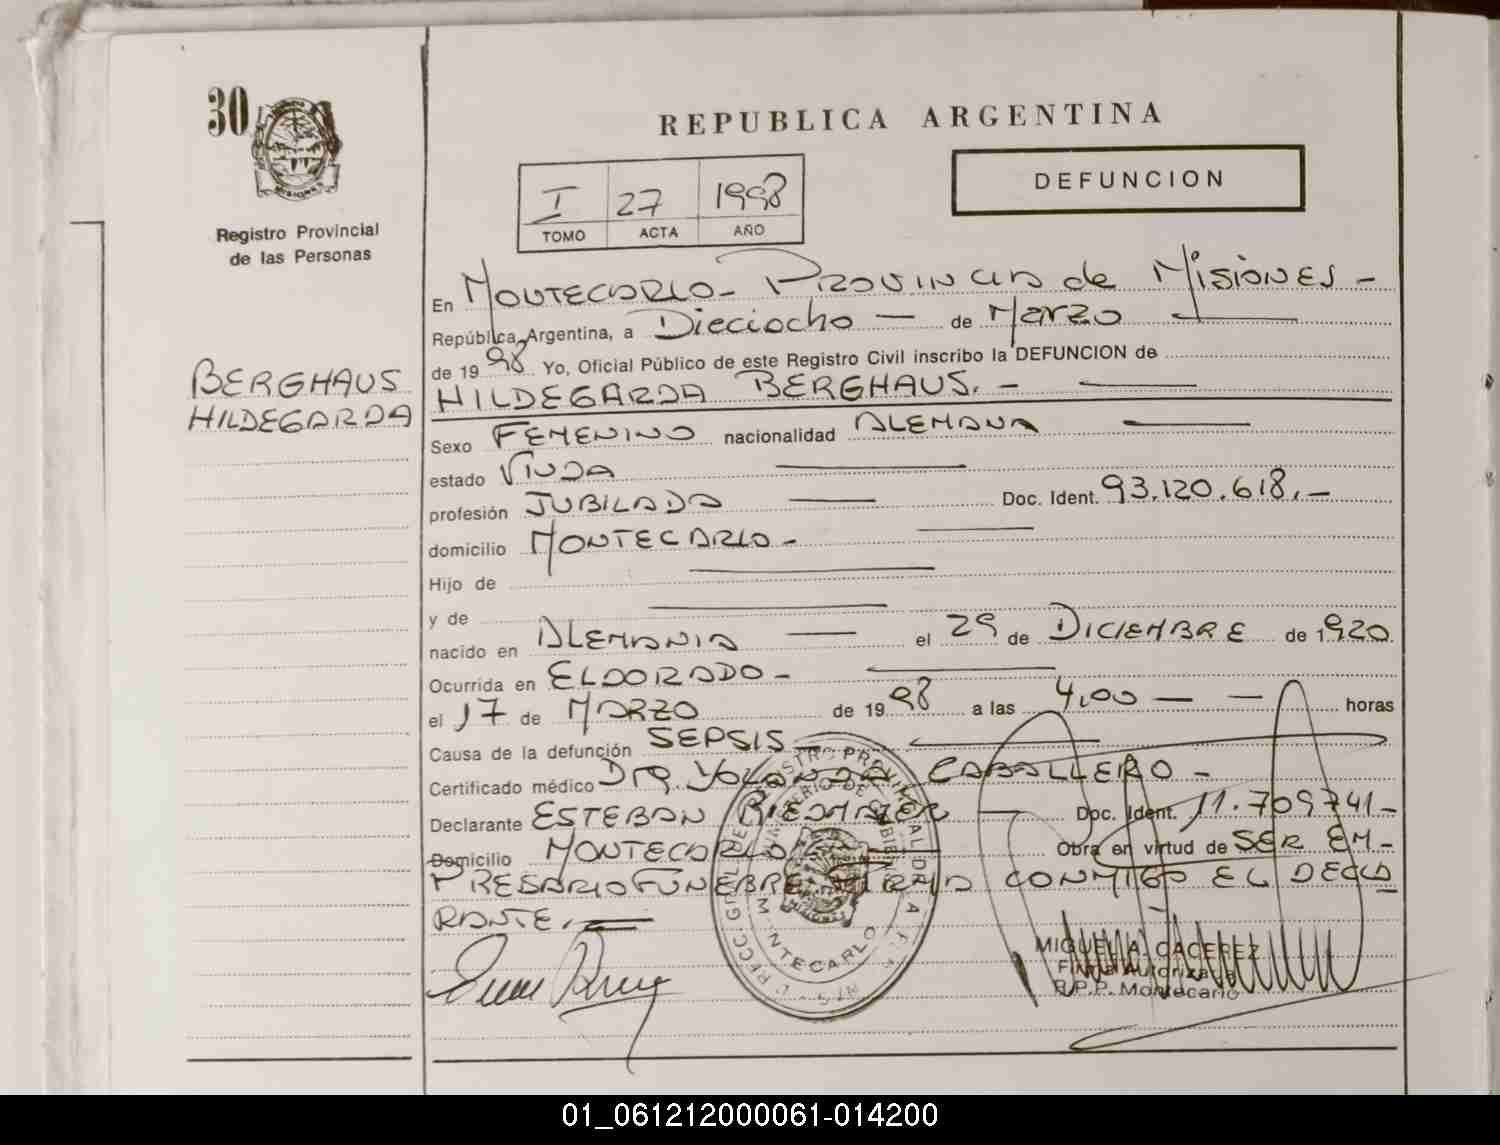 30
REPUBLICA ARGENTINA
I 27 1998
TOMO ACTA AÑO
DEFUNCION
Registro Provincial
de las Personas
BERGHAUS
HILDEGARDA
En MONTECARLO - PROVINCIA de MISIONES -
República Argentina, a Dieciocho — de Marzo
de 19 98 Yo, Oficial Público de este Registro Civil inscribo la DEFUNCION de
HILDEGARDA BERGHAUS. -
Sexo FEMENINO nacionalidad ALEMANA
estado VIUDA
profesión JUBILADA Doc. Ident. 93.120.618.-
domicilio MONTECARLO -
Hijo de
y de
nacido en ALEMANIA — el 29 de DICIEMBRE de 1920
Ocurrida en ELDORADO -
el 17 de MARZO de 19 98 a las 4,00 — — horas
Causa de la defunción SEPSIS
Certificado médico Dra YOLANDA CABALLERO -
Declarante ESTEBAN Doc. Ident. 11.709741-
Domicilio MONTECARLO Obra en virtud de SER EM-
PRESARIO FUNEBRE FIRMA CONMIGO EL DECLA
RANTE. —
MIGUEL A. CACEREZ
Firma Autorizada
R.P.P. Montecarlo
MONTECARLO
01_061212000061-014200